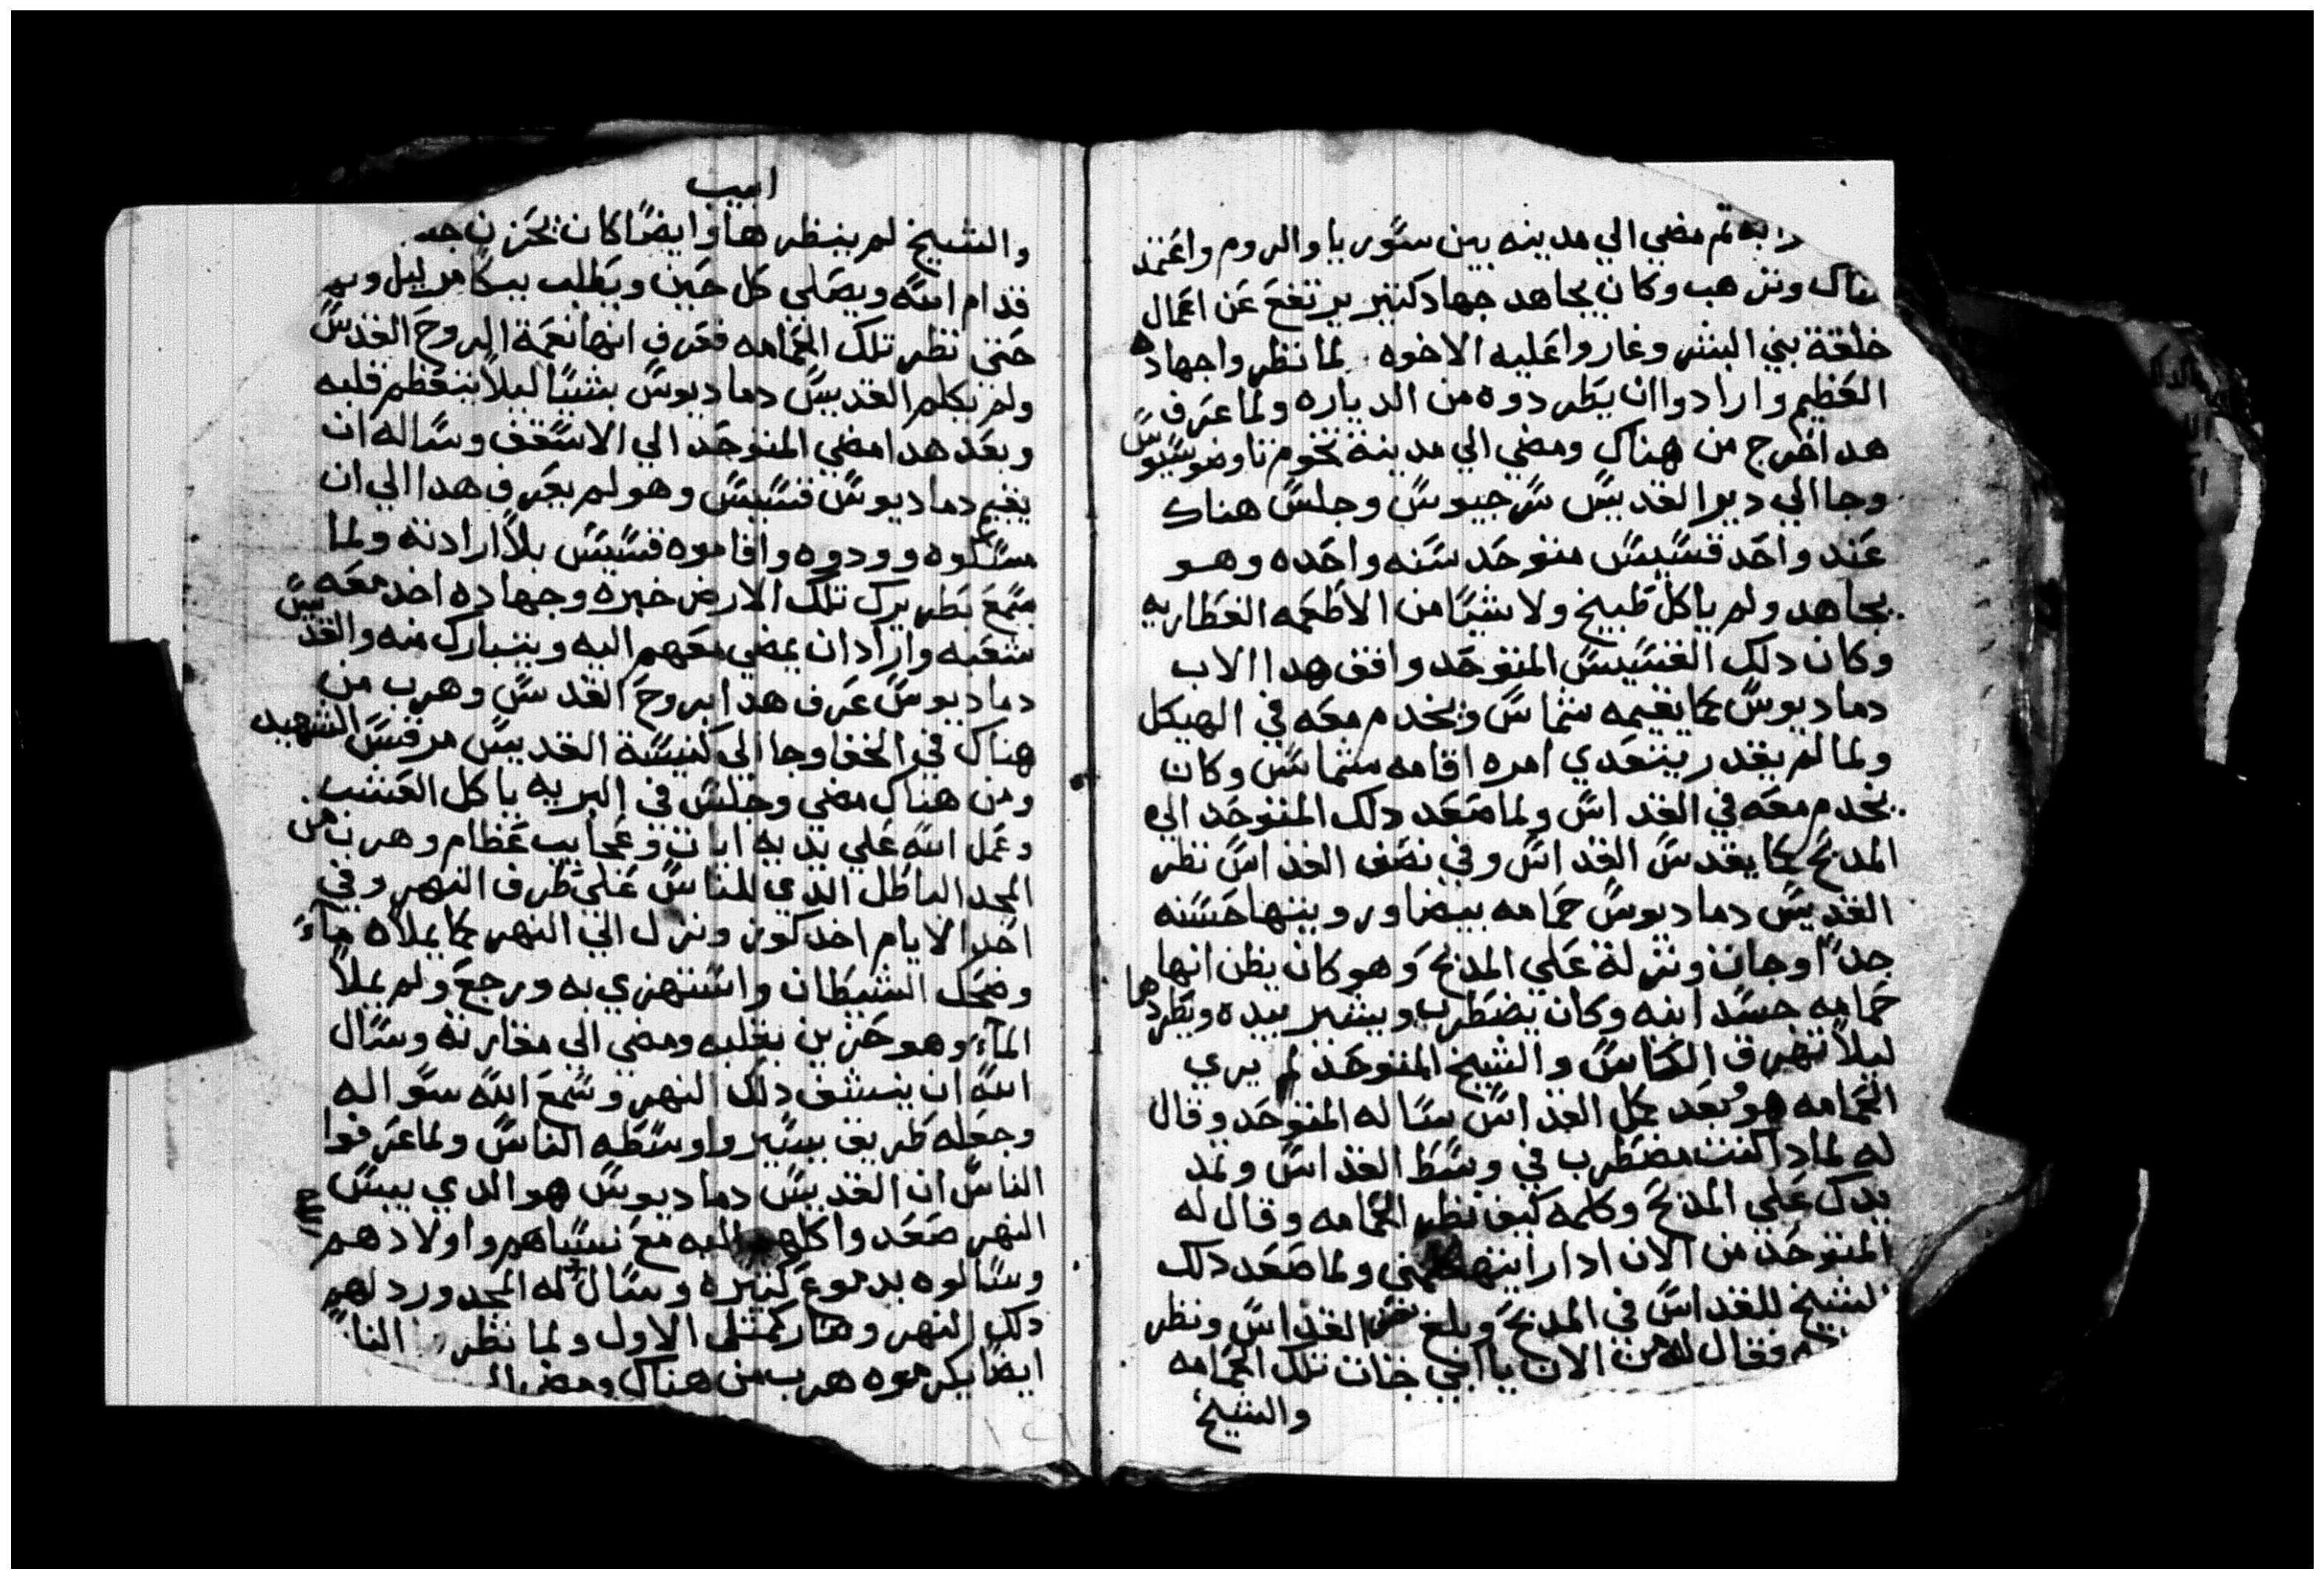 ثم مضي الي مدينه بين سوريا والروم واعتمد
هناك وترهب وكان يجاهد جهاد كتير يرتفع عن اعمال
خلقة بني البشر وغاروا عليه الاخوه لما نظروا جهاده
العظيم وارادوا ان يطردوه من الدياره ولما عرف
هدا خرج من هناك ومضي الي مدينة تخوم
وجا الي دير القديس سرجيوس وجلس هناك
عند واحد قسيس متوحد سنه واحده وهو
يجاهد ولم ياكل طبيخ ولا شيًا من الاطعمه
وكان دلك القسيس المتوحد وافق هدا الاب
دماديوس كما يقيمه شماس ويخدم معه في الهيكل
ولما لم يقدر يتعدي امره اقامه شماس وكان
يخدم معه في القداس ولما صعد دلك المتوحد الي
المدبح كما يقدس القداس وفي نصف القداس نظر
القديس دماديوس حمامه بيضا ورويتها حسنه
جدًا وجات ونزلة علي المدبح وهو كان يظن انها
حمامه جسدانيه وكان يضطرب ويشير بيده ويطردها
ليلًا تهرق الكاس والشيخ المتوحد لم يري
الحمامه هو وبعد كمل القداس ساله المتوحد وقال
له لمادا كنت مضطرب في وسط القداس وتمد
يدك علي المدبح وكلمه كيف نظر الحمامه وقال له
المتوحد من الان ادا رايتها كلمني ولما صعد دلك
الشيخ للقداس في المدبح وبلغ القداس ونظر
فقال له من الان يا ابي جات تلك الحمامه
والشيخ
ابيب
والشيخ لم ينظرها وايضًا كان يحزن جد
قدام الله ويصلي كل حين ويطلب ببكا
حتي نظر تلك الحمامه فعرف انها نعمة الروح القدس
ولم يكلم القديس دماديوس بشيًا ليلًا يتعظم قلبه
وبعد هدا مضي المتوحد الي الاسقف وساله ان
يقيم دماديوس قسيس وهو لم يعرف هدا الي ان
مسكوه وودوه واقاموه قسيس بلا ارادته ولما
سمع بطريرك تلك الارض خبره وجهاده اخد معه
شعبه واراد ان يمضي معهم اليه ويتبارك منه والقديس
دماديوس عرف هدا بروح القدس وهرب من
هناك في الخفا وجا الي كنيسة القديس مرقس الشهيد
ومن هناك مضي وجلس في البريه ياكل العشب
وعمل الله علي يديه ايات وعجايب عظام وهرب من
المجد الباطل الدي للناس علي طرف النهر وفي
احد الايام اخد كوز ونزل الي النهر كما يملاه ماءً
وضحك الشيطان واستهزي به ورجع ولم يملا
الماء وهو حزين بقلبه ومضي الي مغارته وسال
الله ان ينشف دلك النهر وسمع الله سواله
وجعله طريق يسيروا وسطه الناس ولما عرفوا
الناس ان القديس دماديوس هو الدي يبس
النهر صعدوا كلهم اليه مع نسياهم واولادهم
وسالوه بدموع كتيره وسال له المجد ورد لهم
دلك النهر وصار كمتل الاول ولما نظر النا
ايضًا يكرموه هرب من هناك ومضي